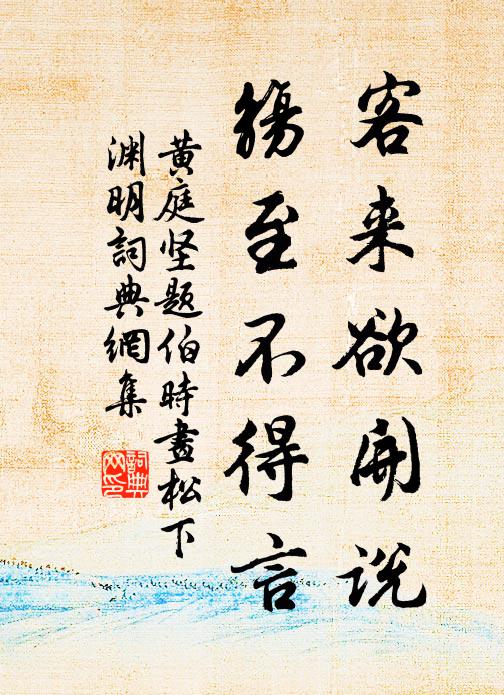 客来欲开说
觞至不得言
黄庭坚题伯时画松下
渊明词典网集
词典
网印